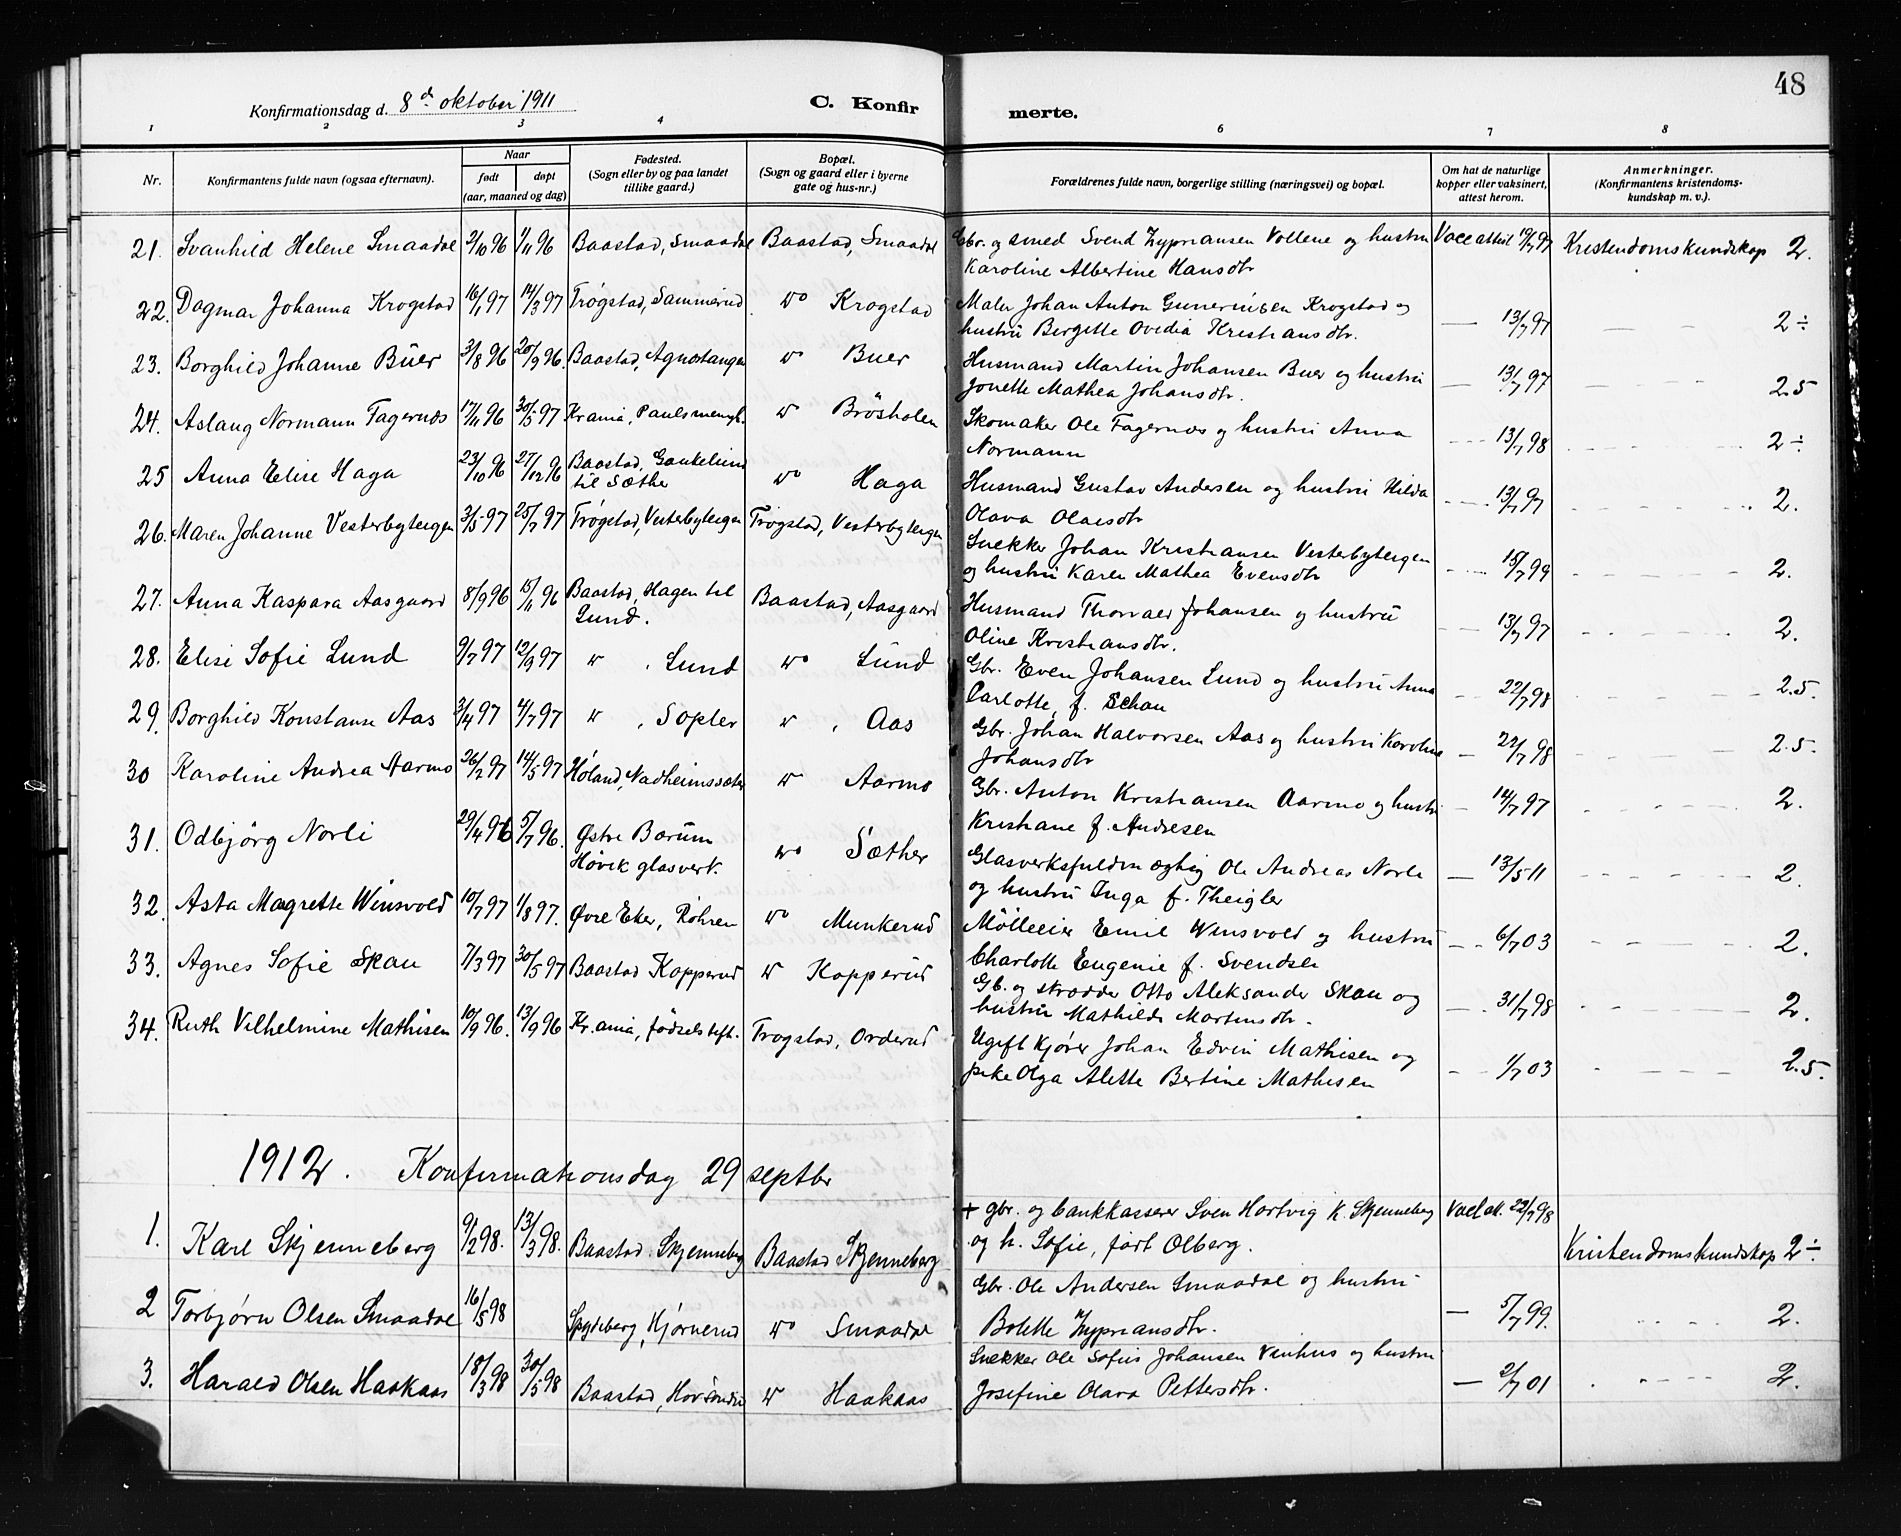 48
Konfirmationsdag d. 8de oktober 1911
C. Konfirmerte.
1 2 3 4 6 7 8
Nr. Konfirmantens fulde navn (ogsaa efternavn). Naar født døpt (aar, maaned og dag) Fødested. (Sogn eller by og paa landet tillike gaard.) Bopæl. (Sogn og gaard eller i byerne gate og hus-nr.) Forældrenes fulde navn, borgerlige stilling (næringsvei) og bopæl. Om hat de naturlige kopper eller vaksinert, attest herom. Anmerkninger. (Konfirmantens kristendomskundskap m. v.).
21. Svanhild Helene Smaadal 2/10 96 1/11 96 Baastad, Smaadal Baastad, Smaadal Gbr. og smed Svend Zypriansen Vollene og hustru Vacc attest 19/7 97 Kristendomskundskap 2.
Karoline Albertine Hansdtr
22. Dagmar Johanna Krogstad 16/1 97 14/3 97 Trøgstad, Sammerud do Krogstad Maler Johan Anton Gunneriusen Krogstad og
hustru Bergitte Ovedia Kristiansdtr. — 13/7 97 — — 2 ÷
23. Borghild Johanne Buer 3/8 96 20/9 96. Baastad, Agnostangen do Buer Husmand Martin Johansen Buer og hustru
Jonette Mathea Johansdtr. — 13/7 97 — — 2.5
24. Aslaug Normann Fagernæs 17/11 96 30/5 97 Kr.ania, Paulsmenigh. do Brösholen Skomaker Ole Fagernæs og hustru Anna
Normann — 13/7 98 — — 2 ÷
25 Anna Elise Haga 23/10 96 27/12 96 Baastad, Gaukelund til Sæther do Haga Husmand Gustav Andersen og hustru Hilda
Olava Olaisdtr — 13/7 97 — — 2.
26. Maren Johanne Vesterbyteigen 3/5 97 25/7 97 Trøgstad, Vesterbyteigen Trøgstad, Vesterbyteigen Snekker Johan Kristiansen Vesterbyteigen
og hustru Karen Mathea Evensdtr — 15/7 99 — — 2.
27. Anna Kaspara Aasgaard 8/9 96 15/11 96 Baastad, Hagen til Lund. Baastad, Aasgaard Husmand Thorvald Johansen og hustru
Oline Kristiansdtr. — 13/7 97 — — 2.
28. Elise Sofie Lund 9/7 97 12/9 97 do, Lund do Lund Gbr. Even Johansen Lund og hustru Anna
Carlotte, f. Schau — 22/7 98 — — 2.5.
29. Borghild Konstanse Aas 3/4 97 4/7 97 do, Sopler do, Aas Gbr. Johan Halvorsen Aas og hustru Karoline
Johansdtr — 22/7 98 — — 2.5.
30 Karoline Andrea Aarmo 26/2 97 14/5 97 Høland, Nadheimssæter do Aarmo Gbr. Anton Kristiansen Aarmo og hustru
Kristiane f. Andresen — 14/7 97 — — 2.
31. Odbjörg Norli 29/4 96 5/7 96. Østre Bærum Høvik glasverk. do Sæther Glasverksfuldmægtig Ole Andreas Norli
og hustru Inga f. Theigler — 13/5 11 — — 2.
32. Asta Magrette Winsvold 10/7 97 1/8 97. Øvre Eker, Röhren do Munkerud Mölleeier Emil Winsvold og hustru
Charlotte Eugenie f. Svendsen — 6/7 03 — — 2.
33. Agnes Sofie Skau 7/3 97 30/5 97 Baastad Kopperud do Kopperud Gb. og skrædder Otto Aleksander Skau og
hustru Mathilde Martinsdtr. — 31/7 98 — — 2.
34. Ruth Vilhelmine Mathisen 10/9 96. 13/9 96 Kr.ania, födselsstift. Trøgstad, Orderud Ugift kjører Johan Edvin Mathisen og
pike Olga Alette Bertine Mathisen — 1/7 03 — — 2.5.
1912. Konfirmationsdag 29 septbr
1. Karl Skjenneberg 9/2 98. 13/3 98. Baastad. Skjenneberg Baastad Skjenneberg + gbr. og bankkasserer Sven Hartvig K. Skjenneberg Vacc att. 22/7 98 Kristendomskundskap 2 ÷
og h. Sofie, född Olberg.
2 Torbjørn Olsen Smaadal 16/5 98 Spydeberg, Hjørnerud do Smaadal Gbr. Ole Andersen Smaadal og hustru
Bolette Zypriansdtr. — 5/7 99. — — 2.
3. Harald Olsen Haakaas 18/3 98 30/5 98 Baastad, Hovsöndre do Haakaas Snekker Ole Sofius Johansen Venhus og hustru
Josefine Olava Pettersdtr. — 2/7 01 — — 2.